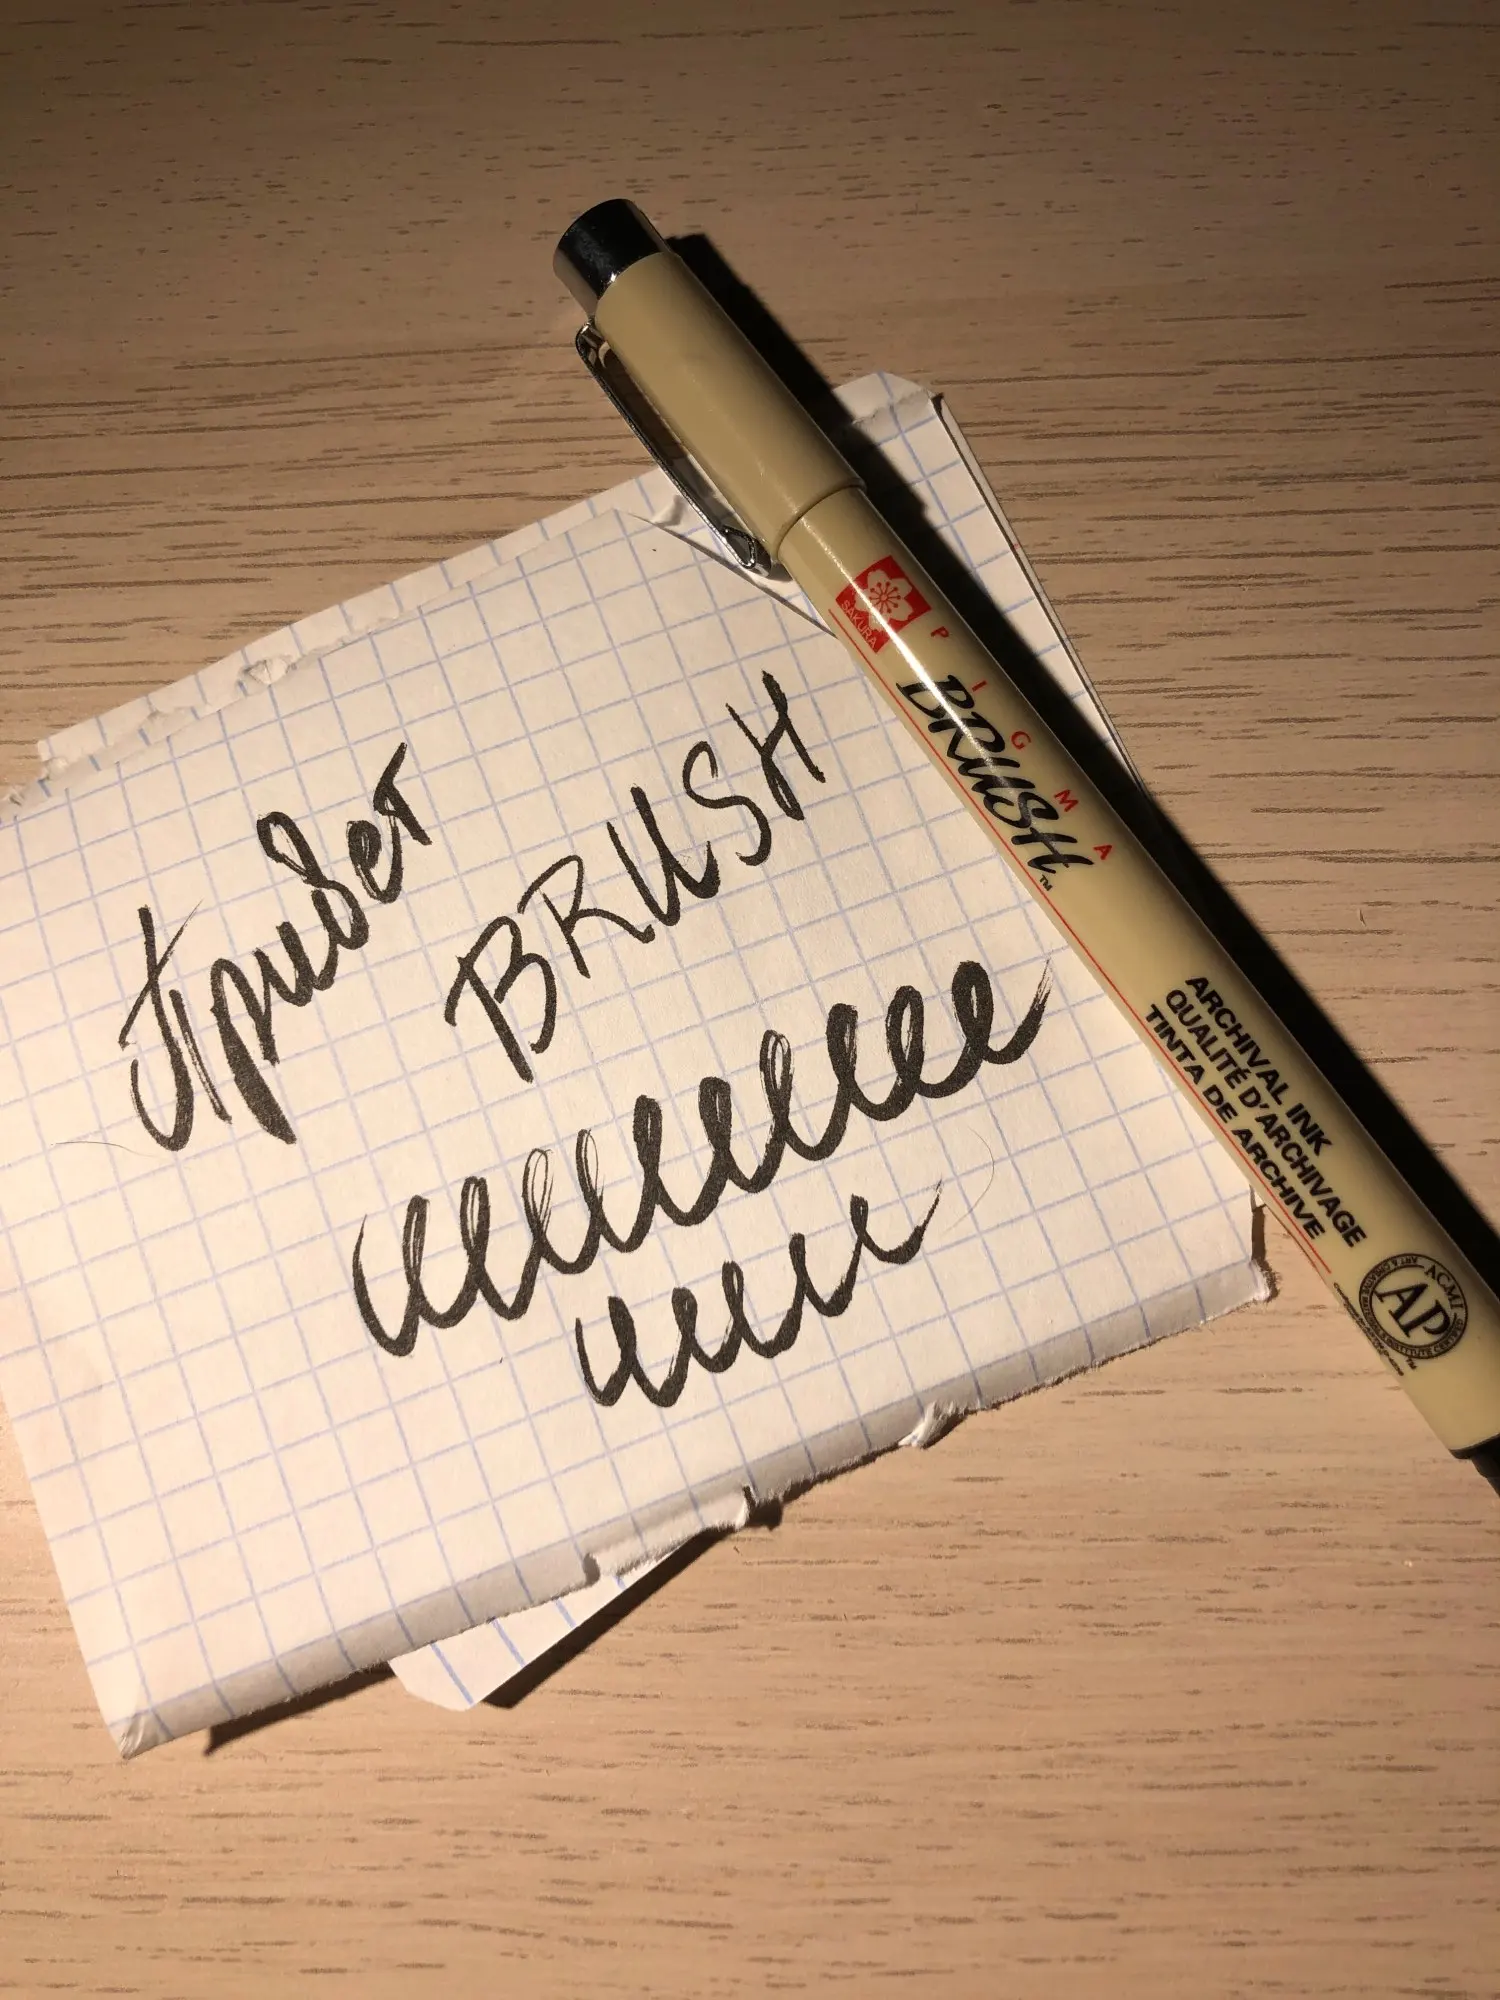 Привет
BRUSH
SAKURA
PIGMA
BRUSH™
ARCHIVAL INK
QUALITÉ D'ARCHIVAGE
TINTA DE ARCHIVE
ACMI
AP